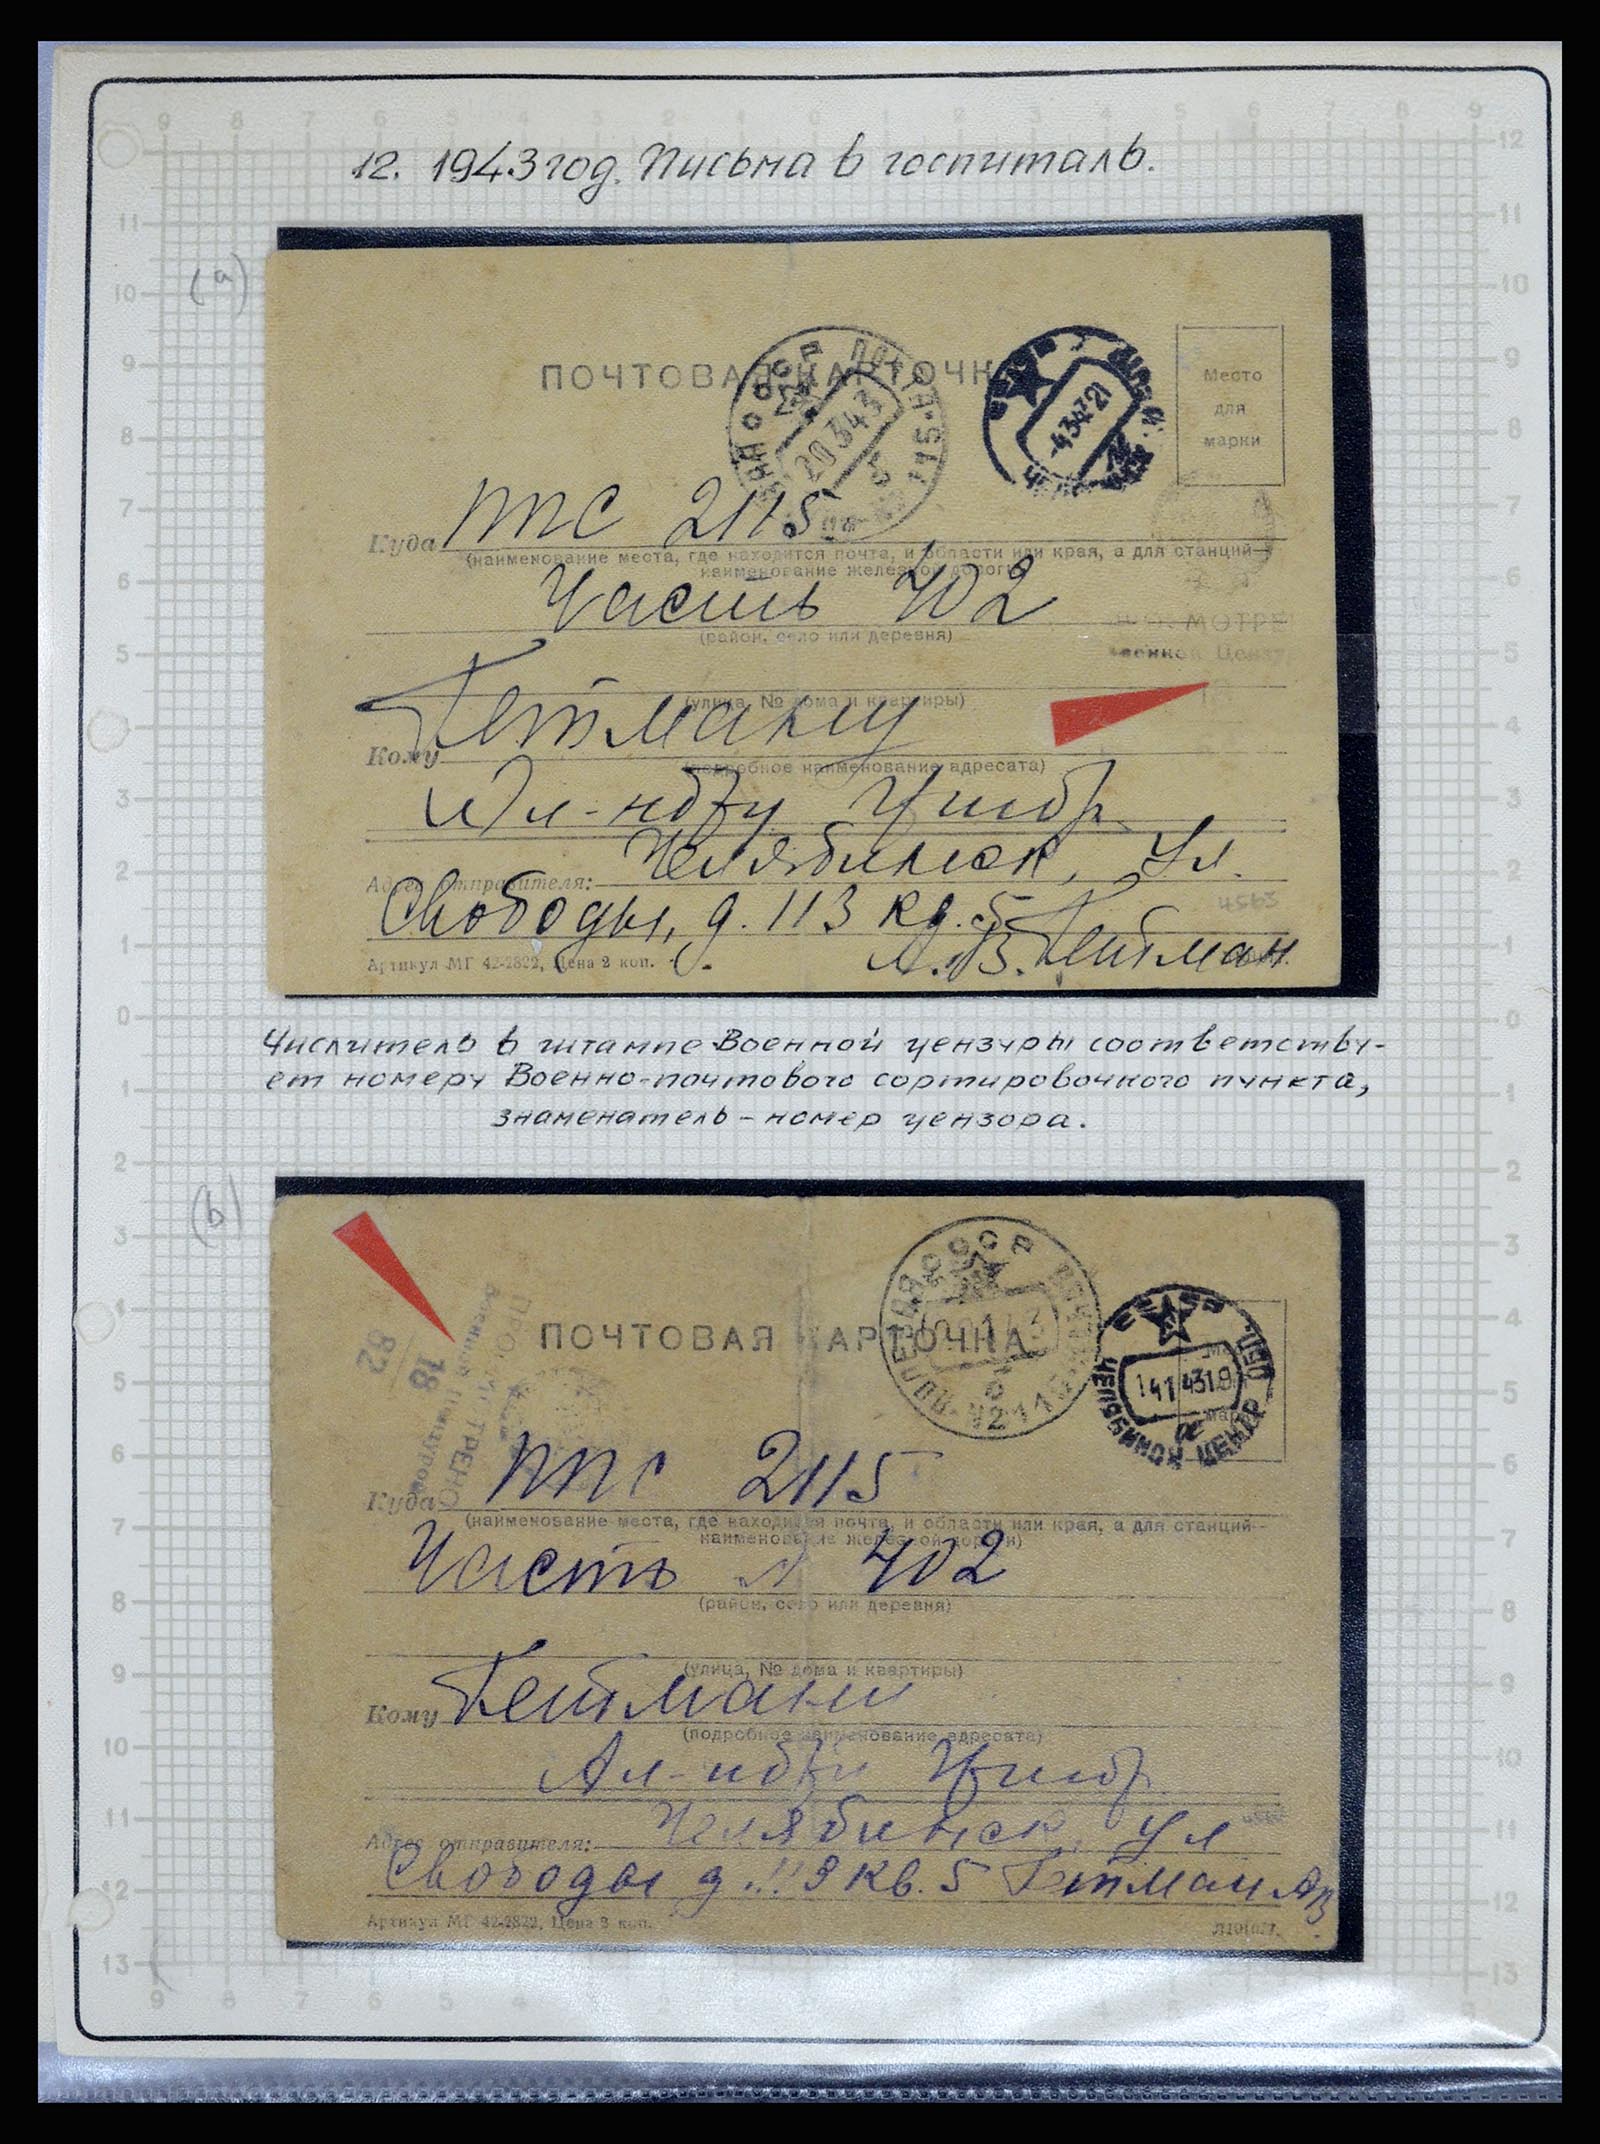 12. 1943 год. Письма в госпиталь.
(a)
ПОЧТОВАЯ КАРТОЧК
20 3 43
-4 3 43 21
Место
для
марки
Куда ППС 2115
(наименование места, где находится почта, и области или края, а для станций—
наименование железной дороги)
Часть 402
(район, село или деревня)
МОТРЕ
военной Цензу
(улица, № дома и квартиры)
Кому Гетману
(подробное наименование адресата)
Челябинск, ул.
Адрес отправителя:
4563
Свободы, д. 113 кв. 5
А.В. Гетман
Артикул МГ 42-2822, Цена 2 коп.
Числитель в штампе Военной цензуры соответству-
ет номеру Военно-почтового сортировочного пункта,
знаменатель – номер цензора.
(b)
ПОЧТОВАЯ КАРТОЧКА
ПОЛЕВАЯ СССР
2115
14 1 43 19
ЧЕЛЯБИНСК
ПРОСМОТРЕНО
Военной Цензурой
18
82
Куда ППС 2115
(наименование места, где находится почта, и области или края, а для станций—
наименование железной дороги)
Часть № 402
(район, село или деревня)
(улица, № дома и квартиры)
Кому Гетману
(подробное наименование адресата)
Челябинск, ул
Адрес отправителя:
Свободы д. 113 кв. 5 Гетман АВ
Артикул МГ 42-2822, Цена 2 коп.